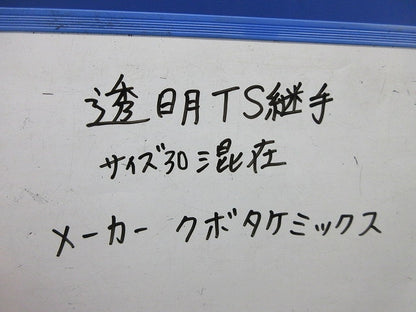 透明TS継手
サイズ30混在
メーカー クボタケミックス